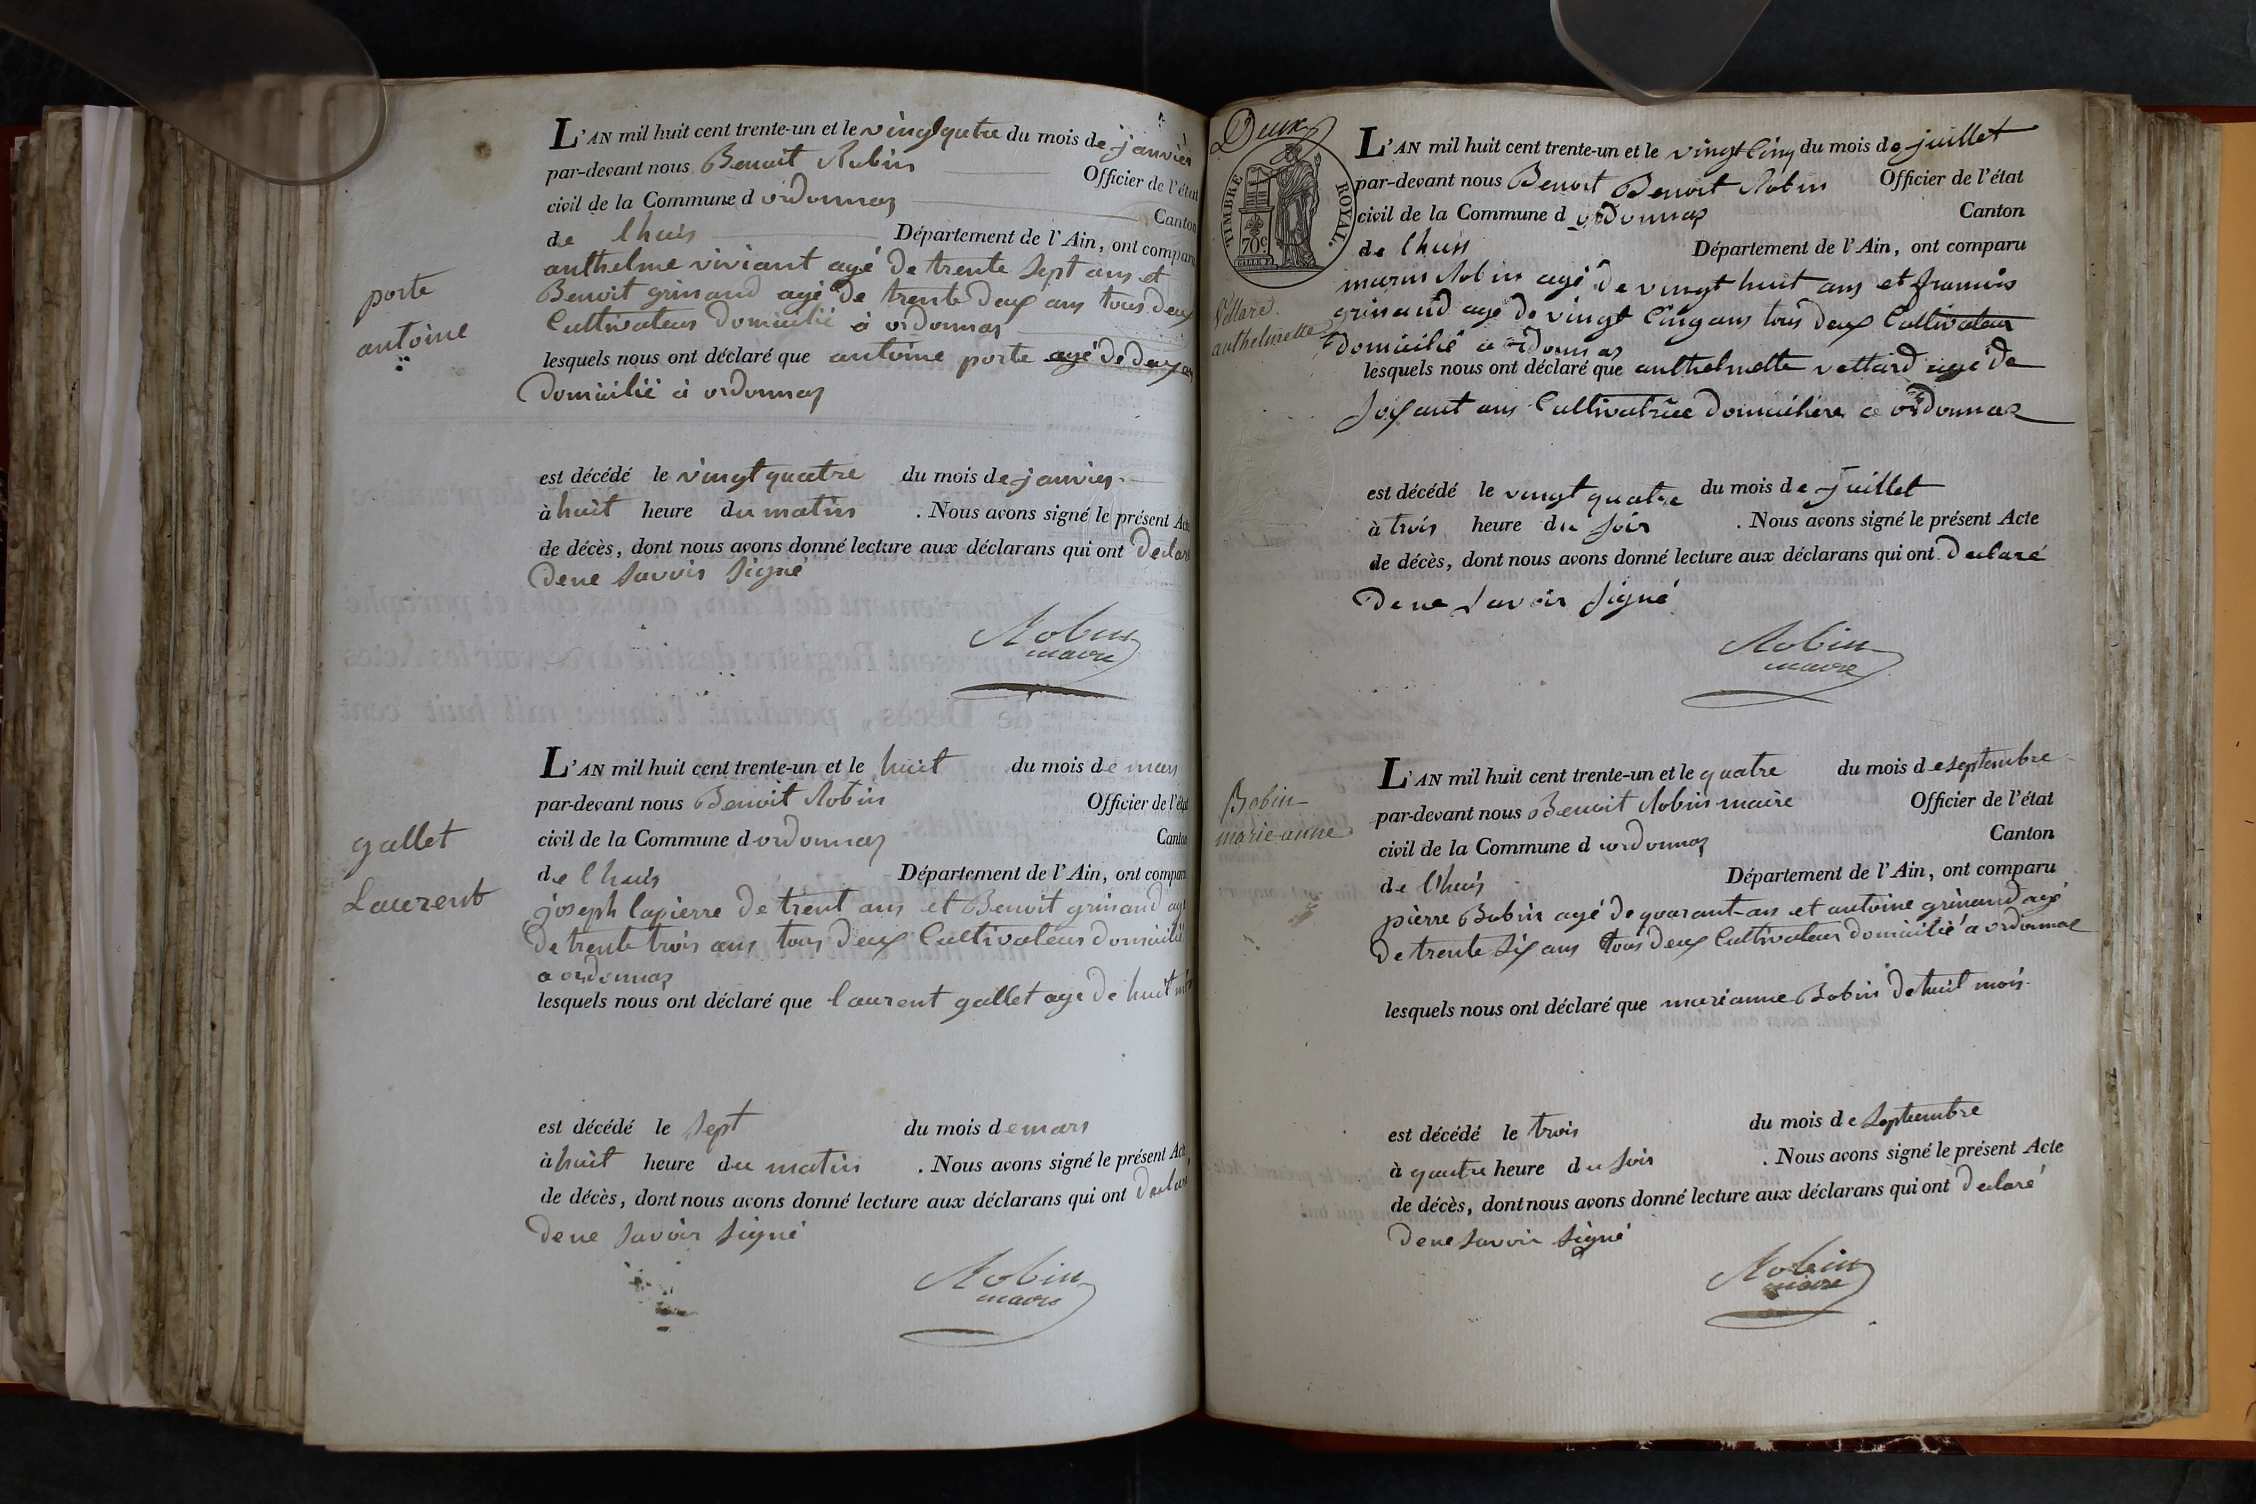 L'AN mil huit cent trente-un et le vingt quatre du mois de janvier
par-devant nous Benoit Robin Officier de l'état
civil de la Commune d ordonnas Canton
de lhuis Département de l'Ain, ont comparu
anthelme viviant agé de trente sept ans et
Benoit grinand agé de trente deux ans tous deux
Cultivateur domicilié à ordonnas
porte
antoine
lesquels nous ont déclaré que antoine porte agé de deux ans
domicilié à ordonnas
est décédé le vingt quatre du mois de janvier
à huit heure du matin . Nous avons signé le présent Acte
de décès, dont nous avons donné lecture aux déclarans qui ont declaré
de ne savoir signé
Robin
maire
L'AN mil huit cent trente-un et le huit du mois de mars
par-devant nous Benoit Robin Officier de l'état
civil de la Commune d ordonnas Canton
de lhuis Département de l'Ain, ont comparu
gallet
Laurent
joseph lapierre de trent ans et Benoit grinand agé
de trente trois ans tous deux Cultivateur domicilié
a ordonnas
lesquels nous ont déclaré que laurent gallet agé de huit mois
est décédé le sept du mois de mars
à huit heure du matin . Nous avons signé le présent Acte
de décès, dont nous avons donné lecture aux déclarans qui ont declaré
de ne savoir signé
Robin
maire
Deux
TIMBRE ROYAL.
70c
L'AN mil huit cent trente-un et le vingt Cinq du mois de juillet
par-devant nous Benoit Benoit Robin Officier de l'état
civil de la Commune d ordonnas Canton
de lhuis Département de l'Ain, ont comparu
marin Robin agé de vingt huit ans et francois
grinand agé de vingt Cinq ans tous deux Cultivateur
domicilié a ordonnas
anthelmette
lesquels nous ont déclaré que anthelmette vettard agé de
soixant ans Cultivatrice domicilière a ordonnas
est décédé le vingt quatre du mois de juillet
à trois heure du soir . Nous avons signé le présent Acte
de décès, dont nous avons donné lecture aux déclarans qui ont declaré
de ne savoir signé
Robin
maire
L'AN mil huit cent trente-un et le quatre du mois de septembre
par-devant nous Benoit Robin maire Officier de l'état
civil de la Commune d ordonnas Canton
de lhuis Département de l'Ain, ont comparu
Bobin
marie anne
pierre Bobin agé de quarant ans et antoine grinand agé
de trente six ans tous deux Cultivateur domicilié a ordonnas
lesquels nous ont déclaré que marianne Bobin de huit mois
est décédé le trois du mois de septembre
à quatre heure du soir . Nous avons signé le présent Acte
de décès, dont nous avons donné lecture aux déclarans qui ont declaré
de ne savoir signé
Robin
maire